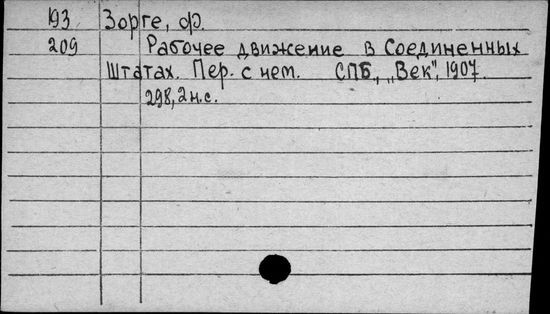 193 Зорге, Ф.
209 Рабочее движение в Соединенных
Штатах. Пер. с нем. СПБ., „Век", 1907.
298, 2 н.с.